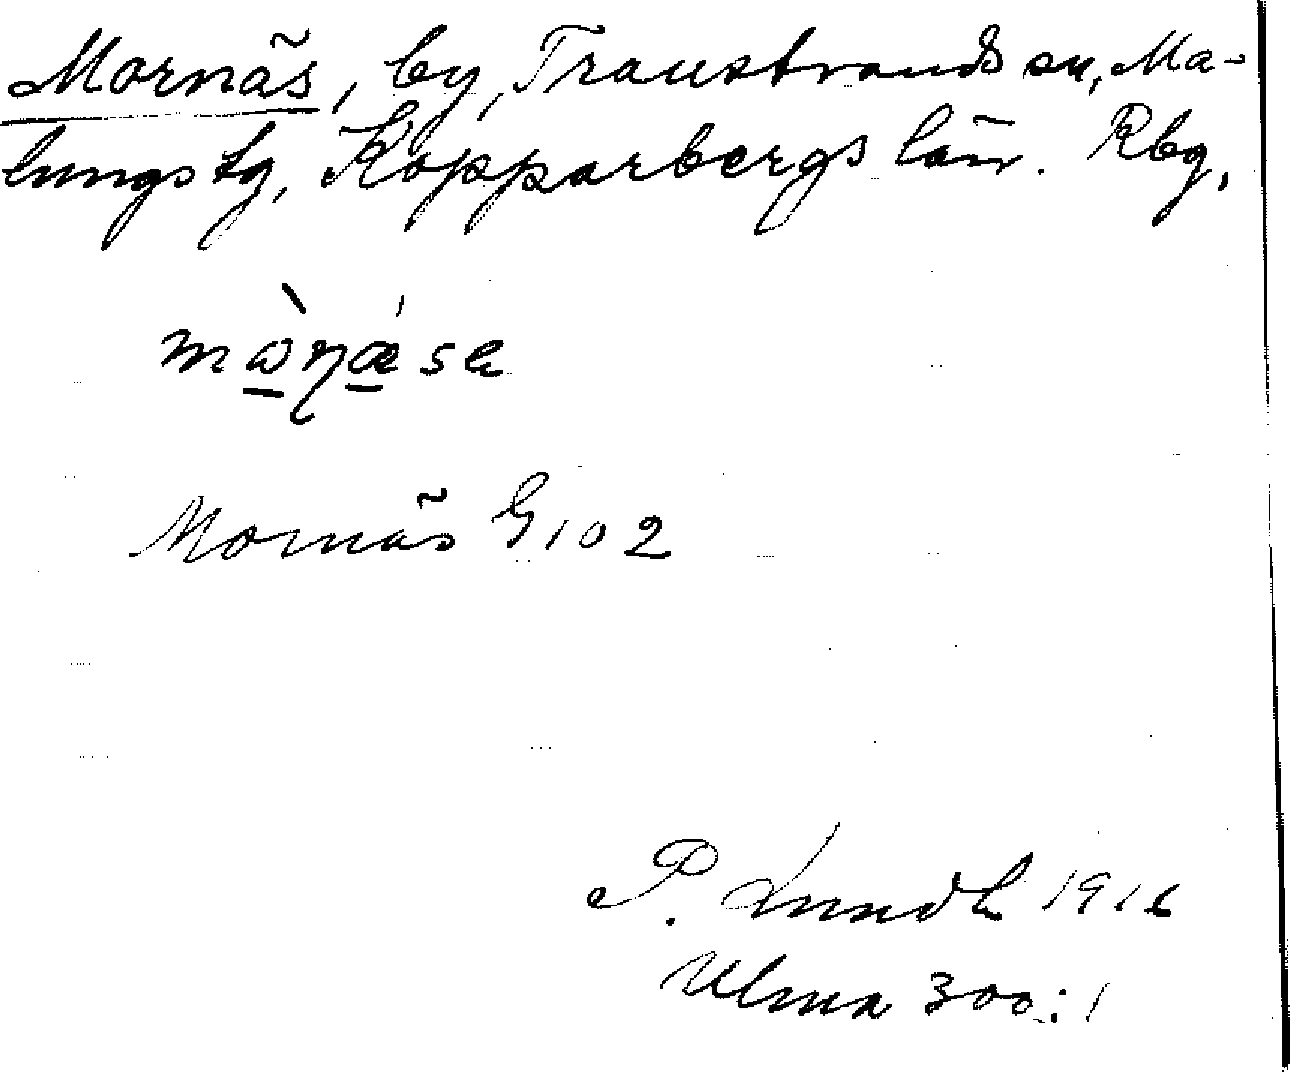 Mornäs, by, Transtrands sn, Ma-
lungs tg, Kopparbergs län. Rbg.
Mornäs G 102
P. Lundh 1916
Ulma 300:1